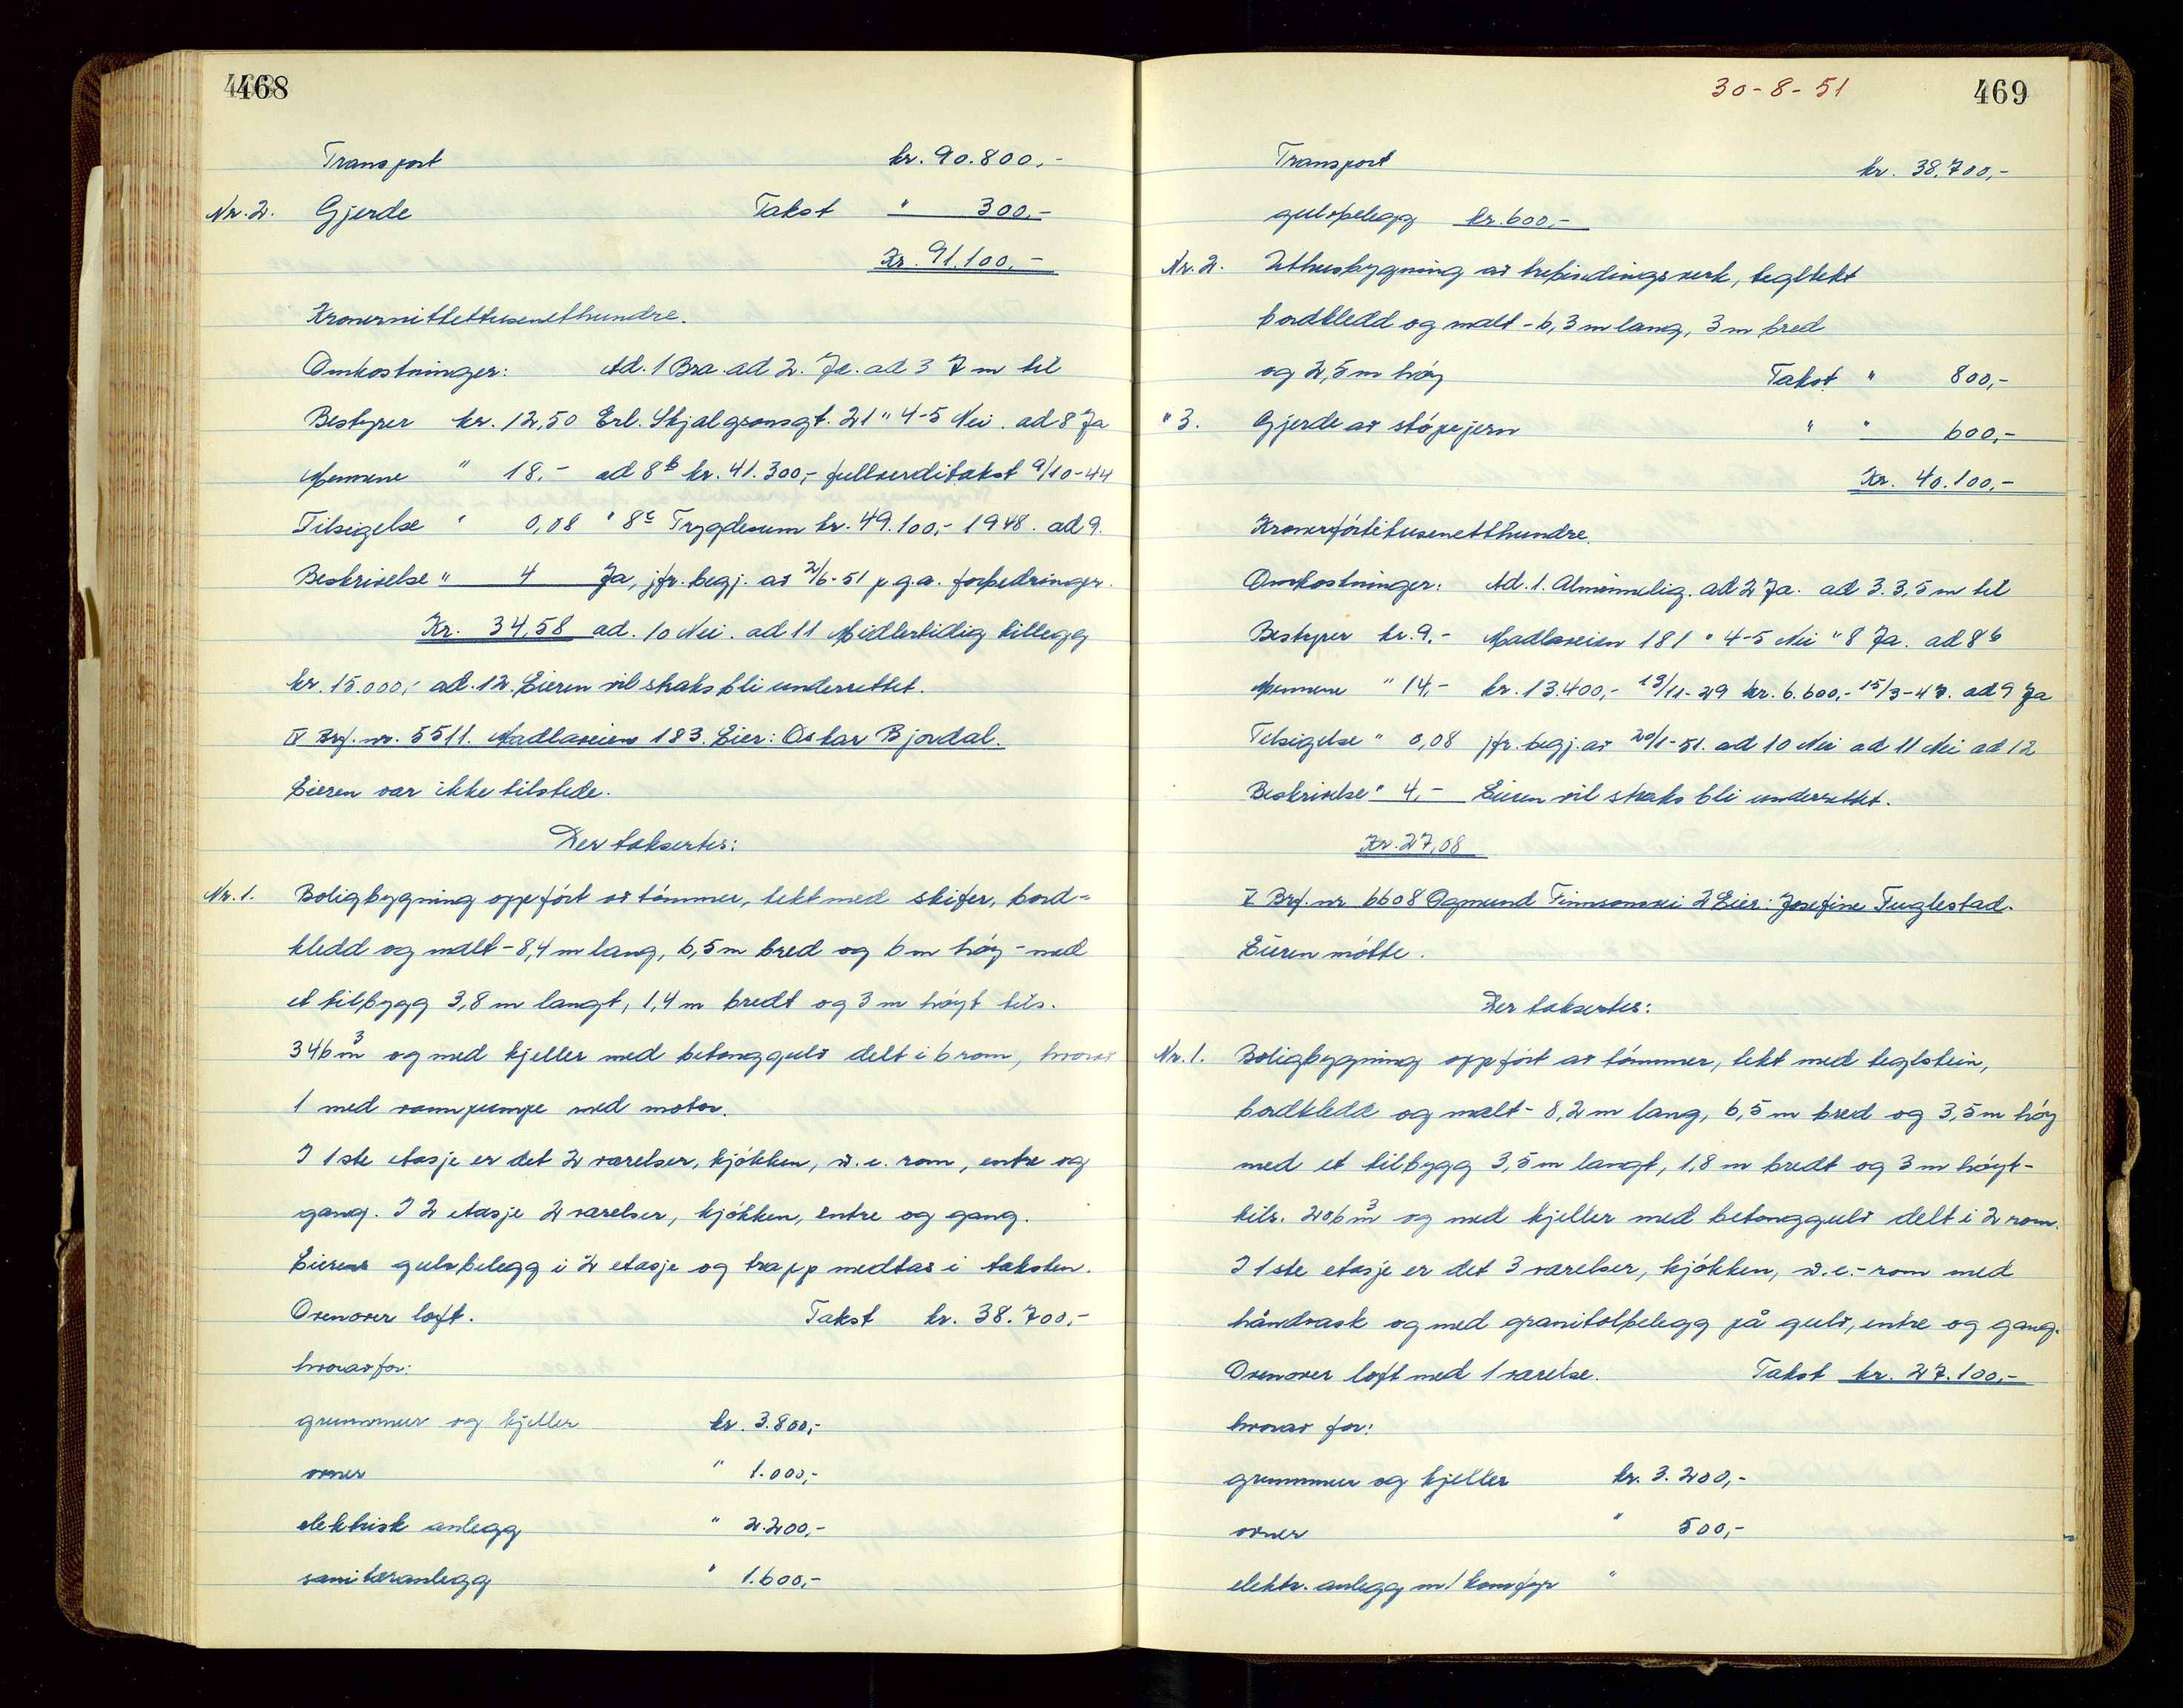 468
Transport kr. 90.800,-
Nr. 2. Gjerde Takst " 300,-
Kr. 91.100,-
Kronernittettusenethundre.
Omkostninger: Ad. 1 Bra. ad 2. Ja. ad 3 7 m til
Bestyrer kr. 12,50 Erl. Skjalgsonsgt. 21 " 4-5 Nei. ad 8 Ja
Mennene " 18.- ad 8b kr. 41.300,- fullverditakst 9/10-44
Tilsigelse " 0,08 " 8c Trygdesum kr. 49.100,- 1948. ad 9.
Beskrivelse " 4 Ja, jfr. begj. av 2/6-51 p.g.a. forbedringer.
Kr. 34,58 ad. 10 Nei. ad 11 Midlertidig tillegg
kr. 15.000,- ad. 12. Eieren vil straks bli underrettet.
IV Brf. nr. 5511. Madlaveien 183. Eier: Oskar Bjordal.
Eieren var ikke tilstede.
Der taksertes:
Nr. 1. Boligbygning oppført av tømmer, tekt med skifer, bord=
kledd og malt - 8,4 m lang, 6,5 m bred og 6 m høy - med
et tilbygg 3,8 m langt, 1,4 m bredt og 3 m høyt tils.
346 m3 og med kjeller med betonggulv delt i 6 rom, hvorav
1 med vannpumpe med motor.
I 1ste etasje er det 2 værelser, kjøkken, w.c. rom, entre og
gang. I 2 etasje 2 værelser, kjøkken, entre og gang.
Eierens gulvbelegg i 2 etasje og trapp medtas i taksten.
Ovenover loft. Takst kr. 38.700,-
hvorav for:
grunnmur og kjeller kr. 3.800,-
ovner " 1.000,-
elektrisk anlegg " 2.200,-
sanitæranlegg " 1.600,-
30-8-51 469
Transport kr. 38.700,-
gulvbelegg kr. 600,-
Nr. 2. Uthusbygning av trebindingsverk, tegltekt
bordkledd og malt - 6,3 m lang, 3 m bred
og 2,5 m høy Takst " 800,-
" 3. Gjerde av støpejern " " 600,-
Kr. 40.100,-
Kronerførtitusenetthundre.
Omkostninger: Ad. 1. Alminnelig. ad 2 Ja. ad 3. 3,5 m til
Bestyrer kr. 9,- Madlaveien 181 " 4-5 Nei " 8 Ja. ad 8b
Mennene " 14,- kr. 13.400,- 13/11-29 kr. 6.600,- 15/3-47. ad 9 Ja
Tilsigelse " 0,08 jfr. begj. av 20/1-51. ad 10 Nei ad 11 Nei ad 12
Beskrivelse " 4,- Eieren vil straks bli underrettet.
Kr. 27,08
V Brf. nr 6608 Ogmund Finnsonsvei 2 Eier: Josefine Fuglestad.
Eieren møtte.
Der taksertes:
Nr. 1. Boligbygning oppført av tømmer, tekt med teglstein,
bordkledd og malt - 8,2 m lang, 6,5 m bred og 3,5 m høy
med et tilbygg 3,5 m langt, 1,8 m bredt og 3 m høyt -
tils. 206 m3 og med kjeller med betonggulv delt i 2 rom.
I 1ste etasje er det 3 værelser, kjøkken, w.c.-rom med
håndvask og med granitolbelegg på gulv, entre og gang.
Ovenover loft med 1 værelse. Takst kr. 27.100,-
hvorav for:
grunnmur og kjeller kr. 3.200,-
ovner " 500,-
elektr. anlegg m/komfyr "